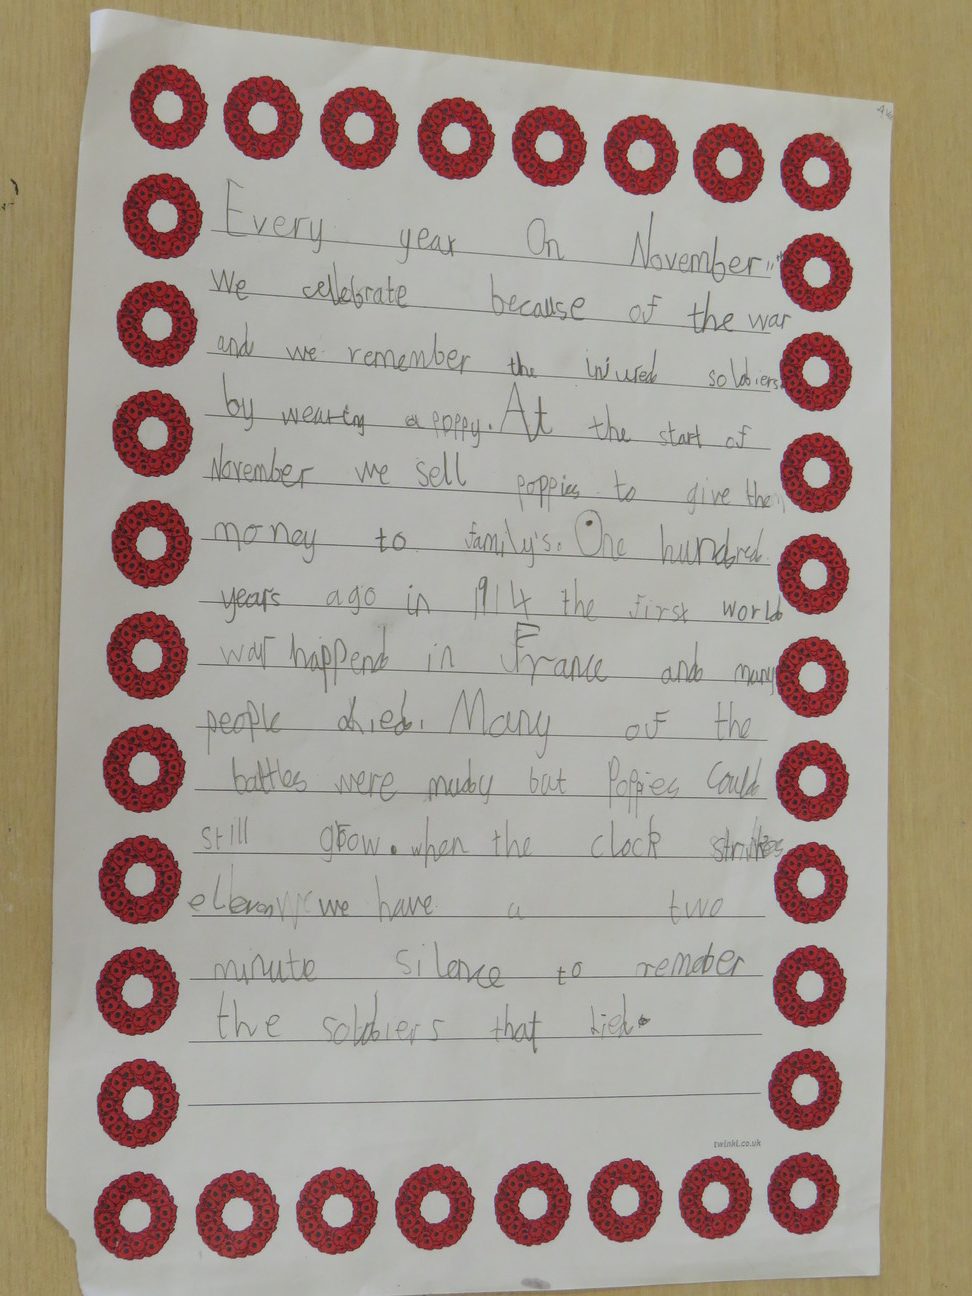 Every year On November 11th
We celebrate because of the war
and we remember the injured soldiers
by wearing a poppy. At the start of
November we sell poppies to give the
money to family's. One hundred
years ago in 1914 the first world
war happend in France and many
people died. Many of the
battles were mudy but Poppies Could
still grow. when the clock strikes
elleven we have a two
minute silence to remeber
the soldiers that died.
twinkl.co.uk